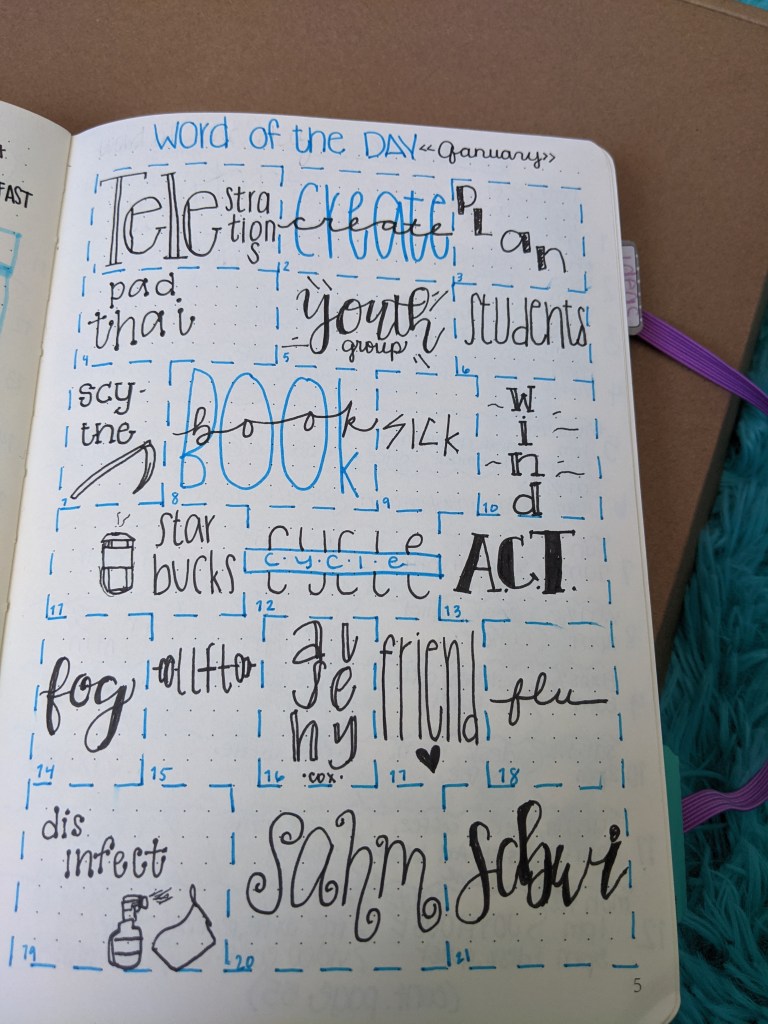 FAST
WORD OF the DAY <<January>>
Telestra
tion
s
create
create
PLan
2
3
pad
thai
youth
group
students
4
5
6
scy-
the
BOOK
book
SICK
wind
7
8
9
10
star
bucks
cycle
c·y·c·l·e
A.C.T.
11
12
13
fog
lift
friend
flu
·cox·
14
15
16
17
18
dis
infect
sahm
19
20
21
5